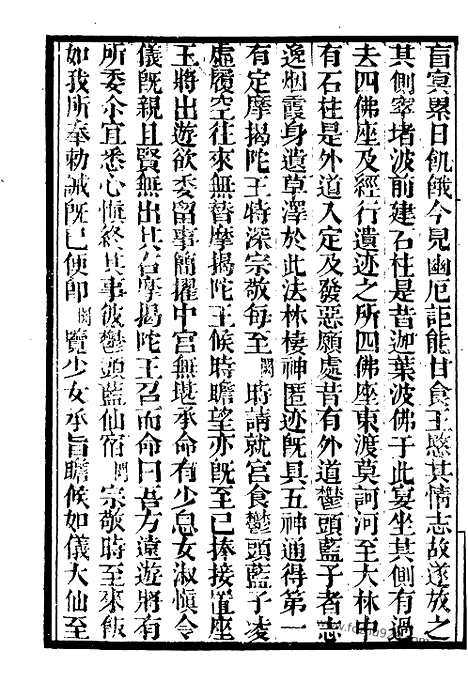 盲冥累日飢餓今見幽厄詎能甘食王愍其情志故遂放之
其側窣堵波前建石柱是昔迦葉波佛于此宴坐其側有過
去四佛座及經行遺迹之所四佛座東渡莫訶河至大林中
有石柱是外道入定及發惡願處昔有外道鬱頭藍子者志
逸烟霞身遺草澤於此法林棲神匿迹既具五神通得第一
有定摩揭陀王特深宗敬每至 闕 時請就宮食鬱頭藍子凌
虛履空往來無替摩揭陀王候時瞻望亦既至已捧接置座
王將出遊欲委留事簡擢中宮無堪承命有少息女淑愼令
儀既親且賢無出其右摩揭陀王召而命曰吾方遠遊將有
所委尒宜悉心愼終其事彼鬱頭藍仙宿 闕 宗敬時至來飯
如我所奉勅誡既已便卽 闕 覽少女承旨瞻候如儀大仙至